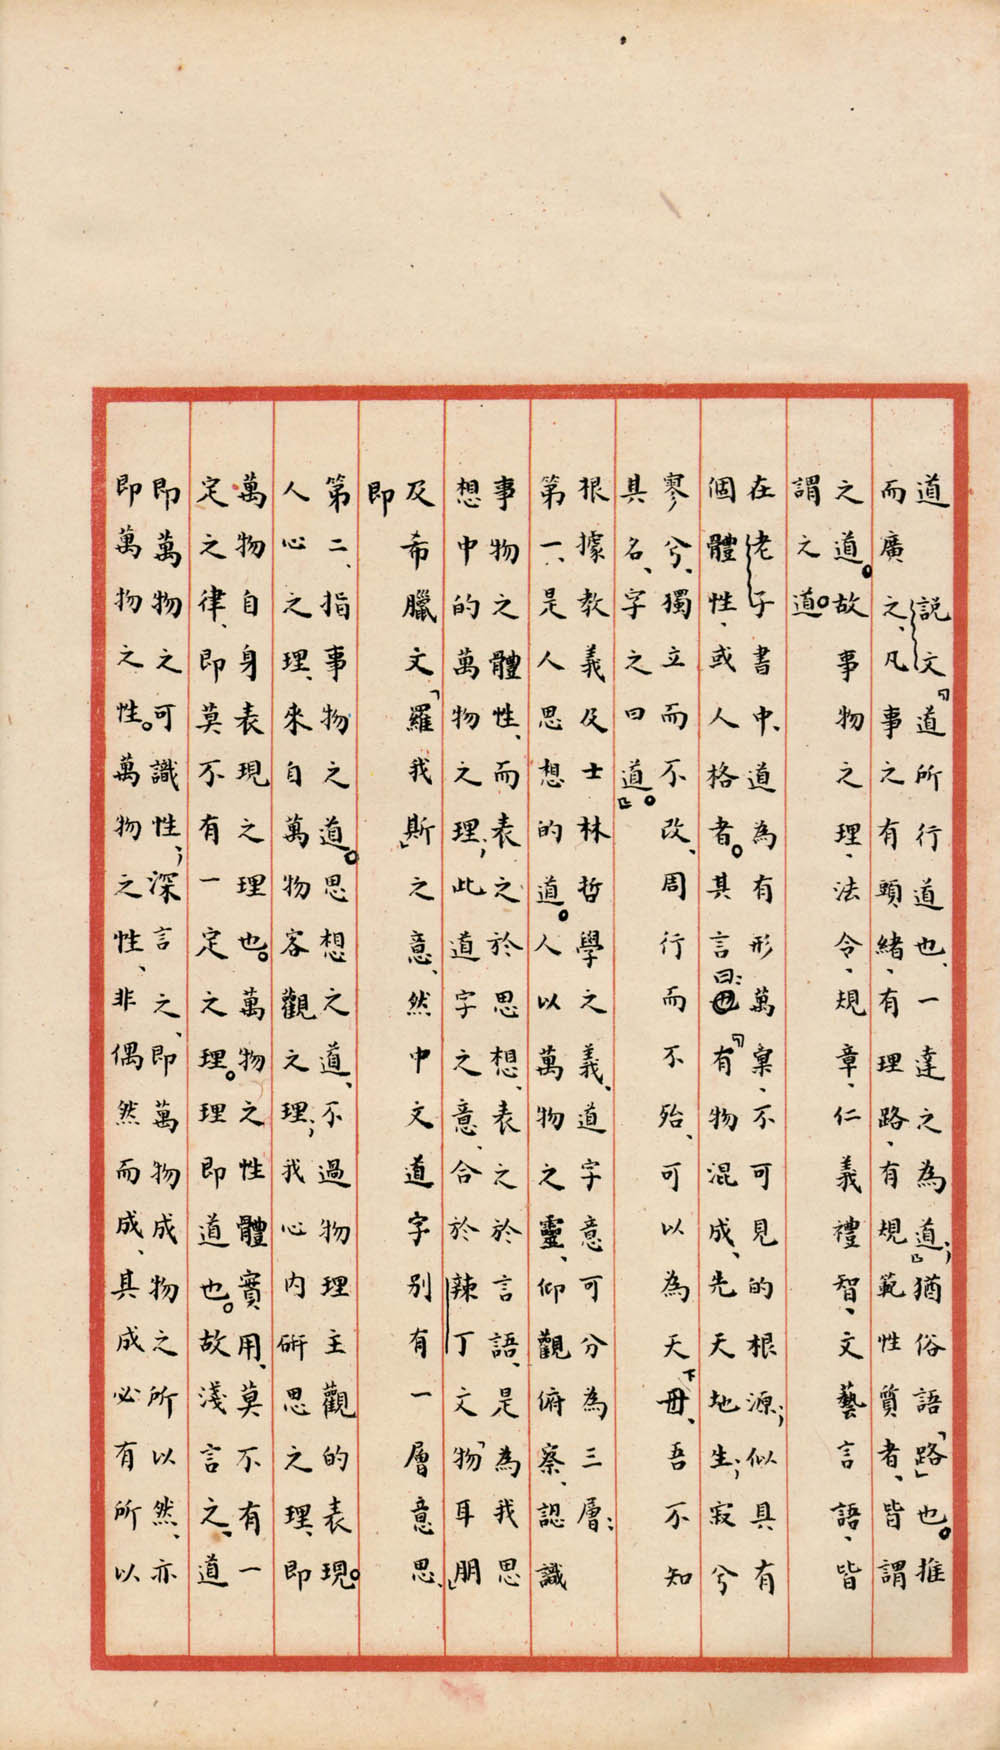 道　說文『道所行道也、一達之為道』；猶俗語「路」也。推
而廣之、凡事之有頭緒、有理路、有規範性質者、皆謂
之道。故事物之理、法令、規章、仁義禮智、文藝言語、皆
謂之道。
在老子書中、道為有形萬稟、不可見的根源；似具有
個體性、或人格者。其言曰：『有物混成、先天地生；寂兮
寥兮、獨立而不改、周行而不殆、可以為天下母、吾不知
其名、字之曰道』。
根據教義及士林哲學之義、道字意可分為三層：
第一、是人思想的道。人以萬物之靈、仰觀俯察、認識
事物之體性、而表之於思想、表之於言語、是為我思
想中的萬物之理；此道字之意、合於辣丁文「物耳朋」
及希臘文「羅我斯」之意、然中文道字別有一層意思、
即
第二、指事物之道。思想之道、不過物理主觀的表現。
人心之理、來自萬物客觀之理；我心內研思之理、即
萬物自身表現之理也。萬物之性體實用、莫不有一
定之律、即莫不有一定之理。理即道也。故淺言之、道
即萬物之可識性；深言之、即萬物成物之所以然、亦
即萬物之性。萬物之性、非偶然而成、其成必有所以